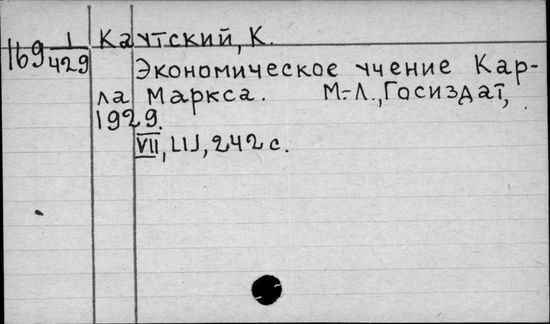 169 1/429 Каутский, К.
Экономическое учение Кар-
ла Маркса. М.-Л., Госиздат,
1929.
VII, LIJ, 242 с.